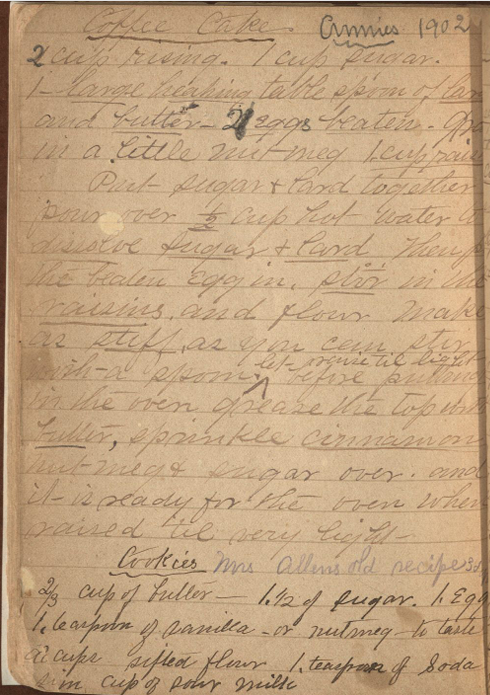 Coffee Cake. Annies 1902
2 cup rising. 1 cup sugar.
1 - large heaping table spoon of lar
and butter - 2 eggs beaten - gra
in a little nut-meg 1 cup rais
Put sugar & lard together
pour over 1/2 cup hot water to
dissolve sugar & lard. Then p
the beaten egg in, stir in the
raisins, and flour make
as stiff, as you can stir
with a spoon. let raise til light
before putting
in the oven grease the top with
butter, sprinkle cinnamon
nut-meg & sugar over. and
it - is ready for the oven when
raised 'til very light -
Cookies Mrs Allens old recipe
2/3 cup of butter - 1 1/2 of sugar. 1. Egg
1. teaspoon of vanilla - or nutmeg - to taste
cups sifted flour 1. teaspoon of Soda
in cup of sour milk